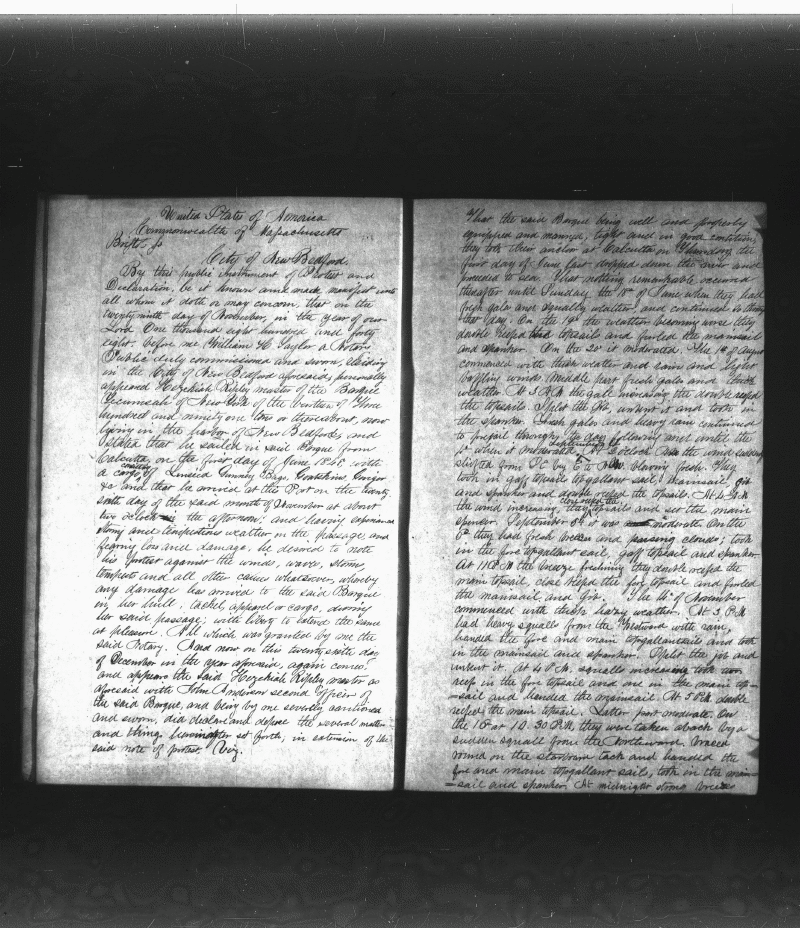 United States of America
Commonwealth of Massachusetts
Bristol, ss
City of New Bedford.
By this public Instrument of Protest and
Declaration, be it known and made manifest unto
all whom it doth or may concern, that on the
twenty ninth day of November, in the year of our
Lord One thousand eight hundred and forty
eight, before me William H. Taylor a Notary
Public duly commissioned and sworn, residing
in the City of New Bedford aforesaid, personally
appeared Hezekiah Ripley master of the Barque
Tecumseh of New York of the burthen of three
hundred and ninety one tons or thereabout, now
lying in the harbor of New Bedford, and
stated that he sailed in said Barque from
Calcutta, on the first day of June 1848 with
a cargo of Linseed Gunny Bags, Goatskins, Ginger
&c and that he arrived at this Port on the twenty
sixth day of the said month of November at about
two oclock in the afternoon: and having experienced
stormy and tempestuous weather in the passage and
fearing loss and damage, he desired to note
his Protest against the winds, waves, storms,
tempests and all other causes whatsoever, whereby
any damage has arrived to the said Barque
in her hull, tackel, apparel or cargo, during
her said passage; with liberty to extend the same
at pleasure. All which was granted by me the
said Notary. And now on this twenty sixth day
of December in the year aforesaid, again comes
and appears the said Hezekiah Ripley master as
aforesaid with John Anderson second officer of
the said Barque, and being by me severally cautioned
and sworn, did declare and depose the several matters
and things hereinafter set forth, in extension of the
said note of protest. Viz.
That the said Barque being well and properly
equipped and manned, tight and in good condition,
they took their anchor at Calcutta on Thursday the
first day of June last dropped down the river and
proceeded to sea. That nothing remarkable occurred
thereafter until Sunday the 18th of June when they had
fresh gales and squally weather and continued so through
that day. On the 19th the weather becoming worse they
double reefed topsails and furled the mainsail
and spanker. On the 20th it moderated. The 1st of August
commenced with thick weather and rain and light
baffling winds. Middle part fresh gales and thick
weather. At 5 P.M. the gale increasing they double reefed
the topsails. Split the jib, unbent it and took in
the spanker. Fresh gales and heavy rain continued
to prevail through the day following and until the
when it moderated. At oclock the wind suddenly
shifted from blowing fresh. They
took in gaff topsail topgallant sail, mainsail, jib
and spanker and double reefed the topsails. At 4 A.M.
the wind increasing, they close reefed the topsails and set the main
spencer. September 5th it was moderate. On the
6th they had fresh breezes and passing clouds; took
in the fore topgallant sail, gaff topsail and spanker
At 11 P.M. the breeze freshening they double reefed the
main topsail, close reefed the fore topsail and furled
the mainsail and jib. The 14th of November
commenced with thick hazy weather. At 3 P.M.
had heavy squalls from the Westward with rain,
handed the fore and main topgallantsails and took
in the mainsail and spanker. Split the jib and
unbent it. At 4 P.M. squalls increasing took two
reefs in the fore topsail and one in the main top-
-sail and handed the mainsail. At 5 P.M. double
reefed the main topsail. Latter part moderate. On
the 16th at 10.30 P.M. they were taken aback by a
sudden squall from the Northward. Braced
round on the starboard tack and handed the
fore and main topgallant sails, took in the main-
-sail and spanker. At midnight strong breezes